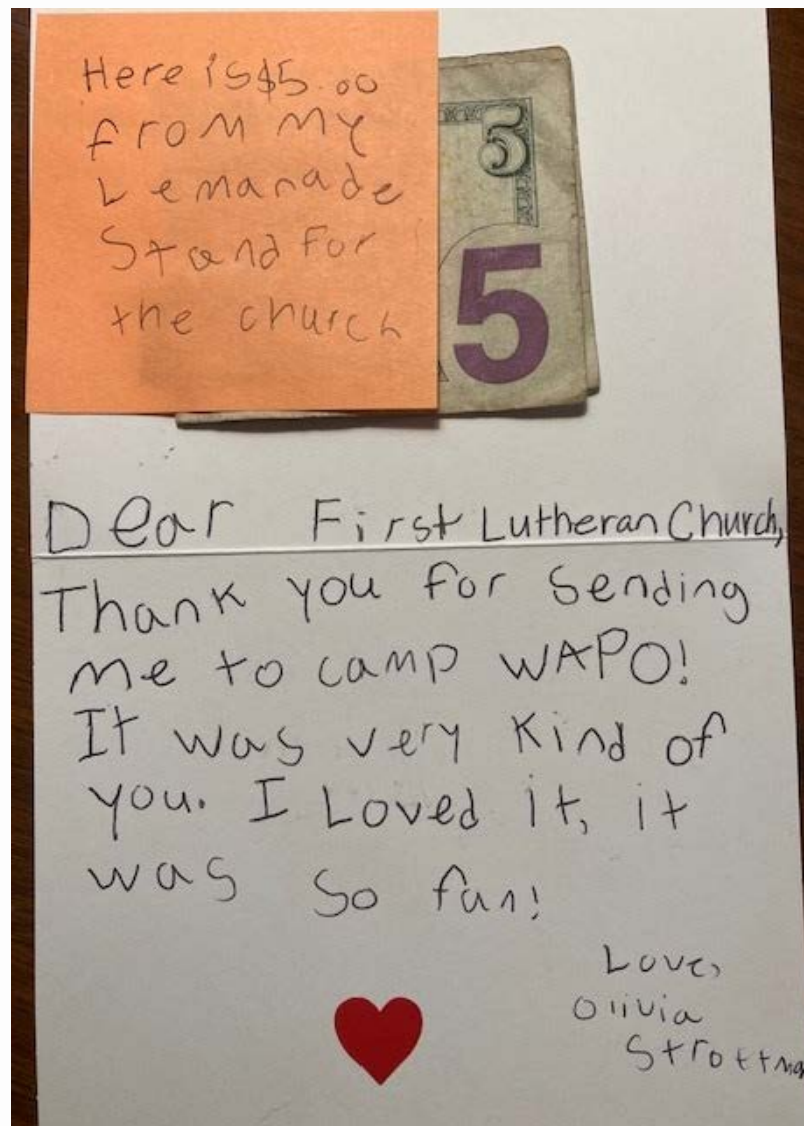 Here is $5.00
from my
Lemanade
Stand For
the church
5
5
Dear First Lutheran Church,
Thank you for Sending
me to camp WAPO!
It was very Kind of
you. I Loved it, it
was so fun!
Love,
Olivia